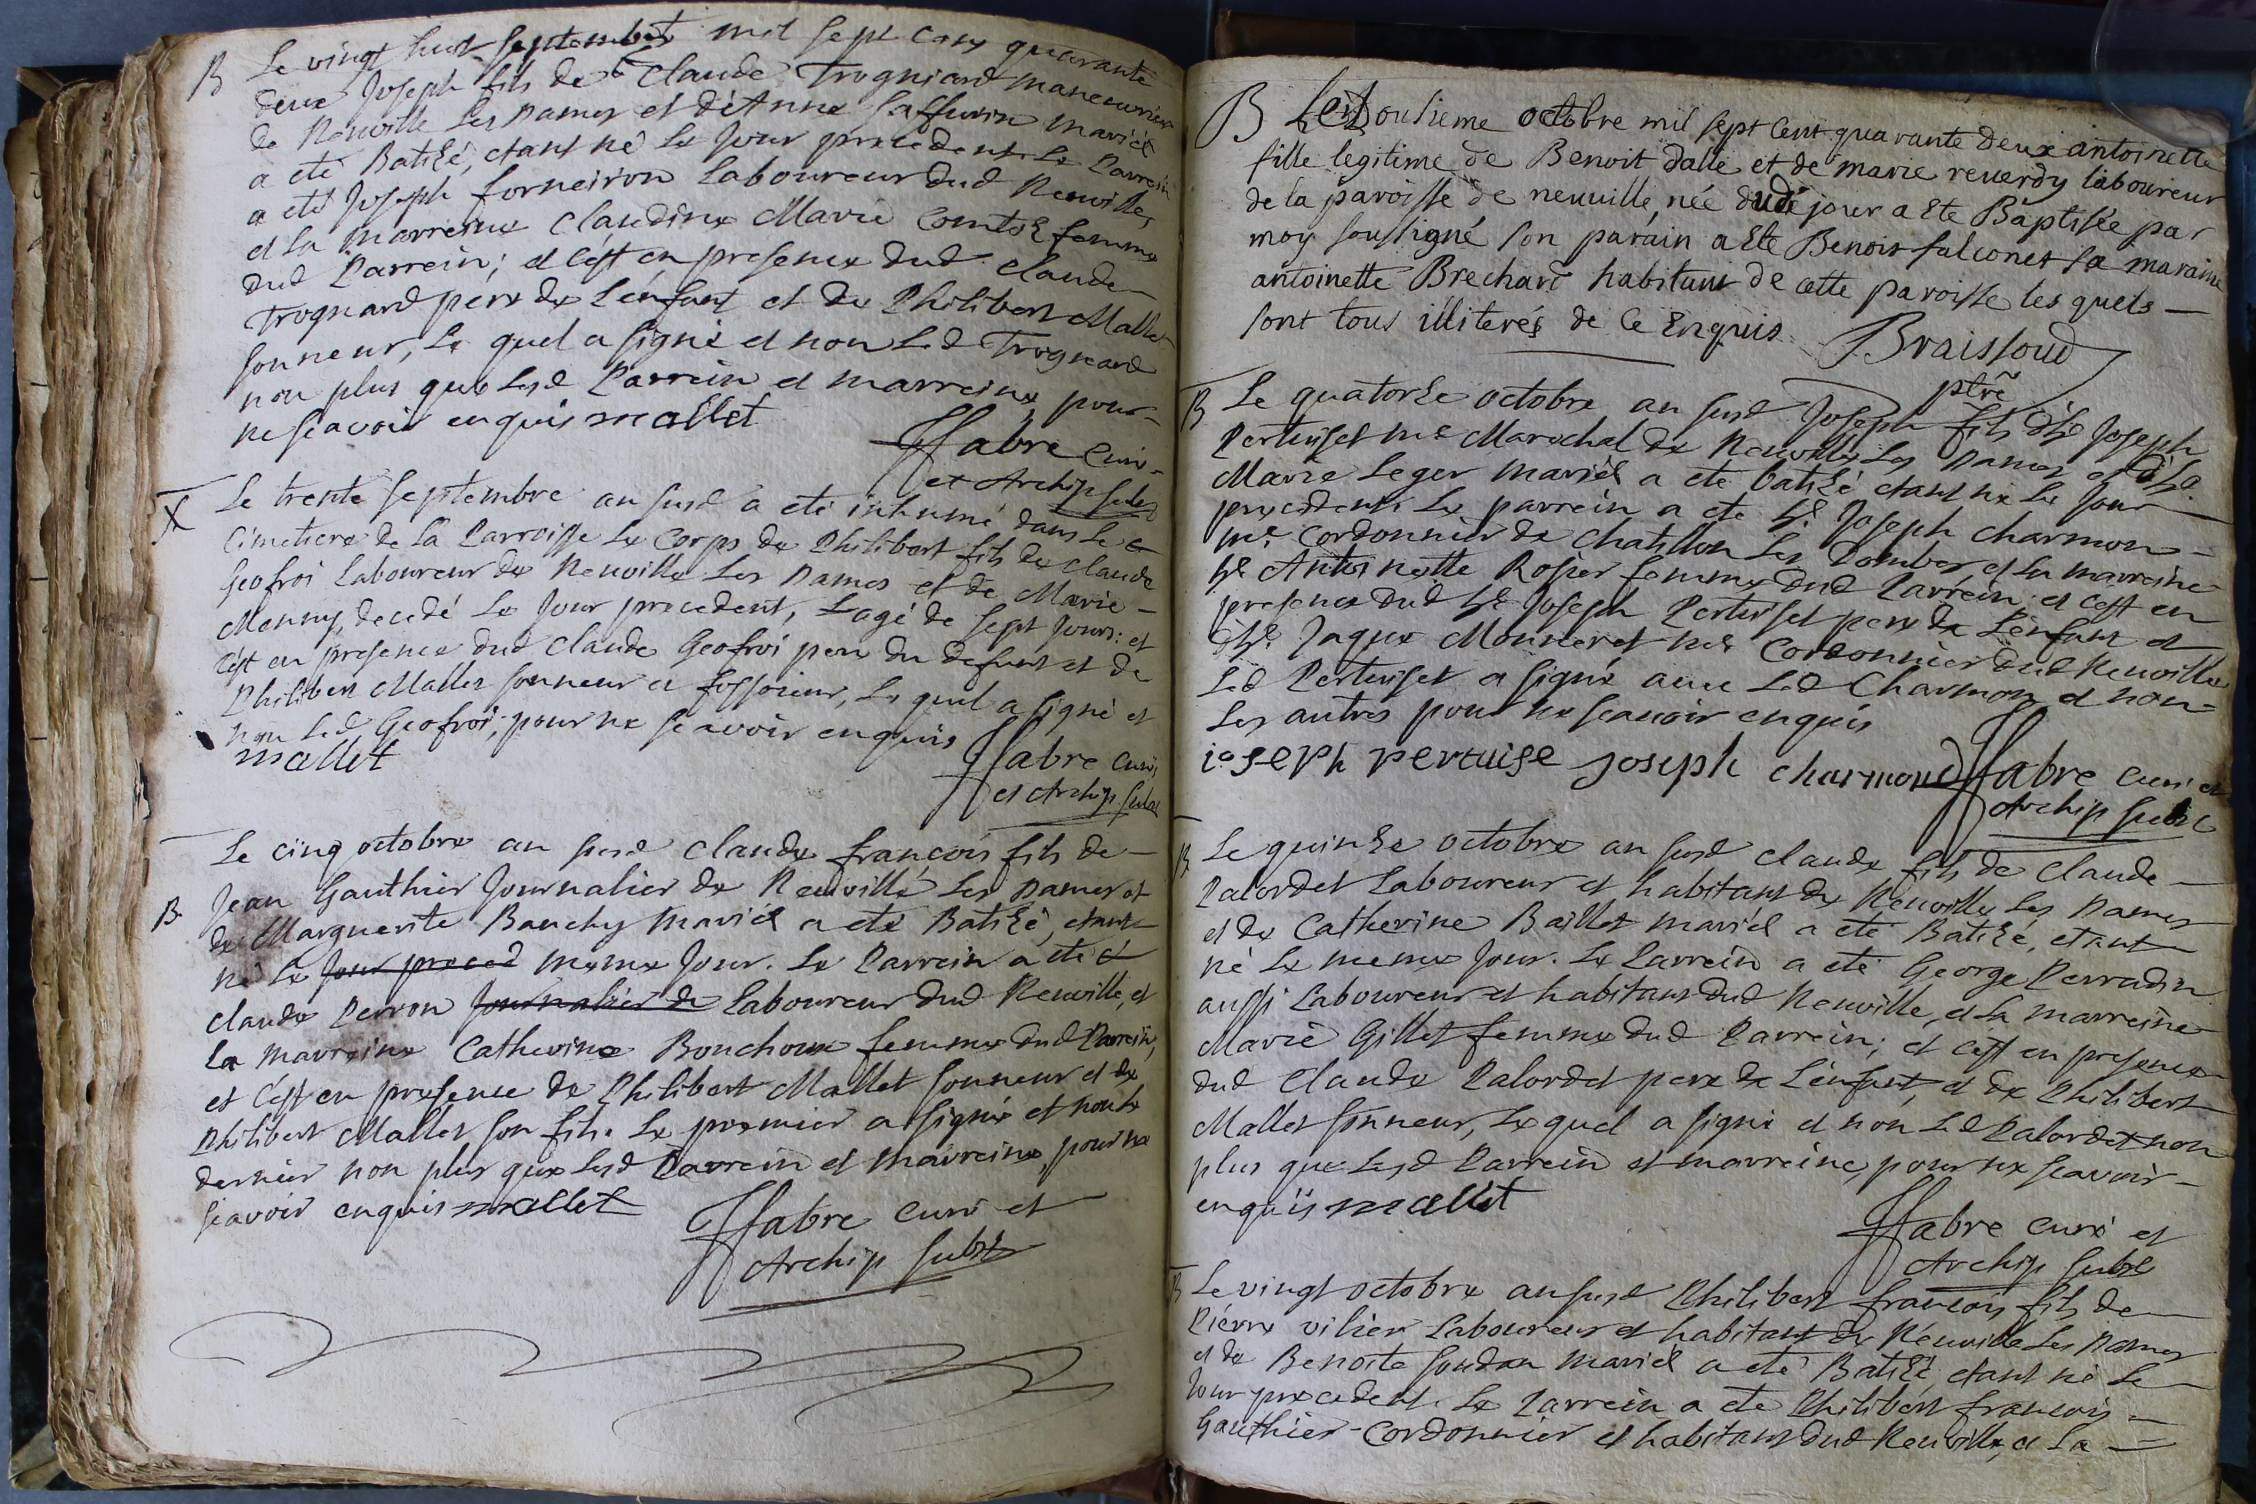 B Le vingt huit septembre mil sept cens quarante
deux Joseph fils de Claude Trogniard manouvrier
de Neuville les Dames et d'Anne Saffurin mariés
a eté Batizé, etant né le Jour precedent. Le Parrein
a eté Joseph forneiron Laboureur dud Neuville,
et la marreine Claudine Marie Comtet femme
dud Parrein; et c'est en presence dud Claude
Trogniard pere de L'enfant et de Philibert Mallet
sonneur, le quel a signé et non Led Trogniard
non plus que Lesd Parrein et marreine, pour
ne scavoir enquis mallet
ffabre curé
et Archip subst
X Le trente Septembre an susd a eté inhumé dans le
Cimetiere de la Parroisse le Corps de Philibert fils de Claude
Geofroi Laboureur de Neuville Les Dames et de Marie
Monny, decedé le Jour precedent, agé de sept Jours: et
c'est en presence dud Claude Geofroi pere du defunt et de
Philibert Mallet sonneur et fossoieur, le quel a signé et
non Led Geofroi, pour ne scavoir enquis
mallet ffabre curé
et Archip subst
Le cinq octobre an susd Claude françois fils de
B Jean Gauthier Journalier de Neuville Les Dames et
de Marguerite Banchy mariés a eté Batizé, etant
né le Jour preced meme Jour. Le Parrein a eté
Claude Perron Journalier de Laboureur dud Neuville, et
la marreine Catherine Bouchoux femme dud Parrein,
et c'est en presence de Philibert Mallet sonneur et de
Philibert Mallet son fils. Le premier a signé et non le
dernier non plus que Lesd Parrein et marreine, pour ne
scavoir enquis mallet
ffabre curé et
Archip subst
B Le douzieme octobre mil sept cent quarante deux antoinette
fille legitime de Benoit dalle et de marie reverdy laboureur
de la paroisse de neuville, née dudi jour a ete Baptisée par
moy soussigné son parain a ete Benoit falconet sa maraine
antoinette Brechard habitant de cette paroisse les quels
sont tous illiterés de ce Enquis. Braissoud
ptre
B Le quatorze octobre an susd Joseph fils d'hle Joseph
Pertuiset me Marechal de Neuville Les Dames et d'hle
Marie Leger mariés a eté batizé etant né le Jour
precedent. Le parrein a eté hle Joseph Charmon
me Cordonnier de Chatillon Les Dombes et la marreine
hle Antoinette Rosier femme dud Parrein et c'est en
presence dud hle Joseph Pertuiset pere de L'enfant et
d'hle Jaque Monneret me Cordonnier dud Neuville
Led Pertuiset a signé avec Led Charmon et non
Les autres pour ne scavoir enquis
ioseph pertuise Joseph charmond ffabre curé et
Archip subst
B Le quinze octobre an susd Claude fils de Claude
Palordet Laboureur et habitant de Neuville Les Dames
et de Catherine Baillet mariés a eté Batizé, etant
né le meme Jour. Le Parrein a eté George Perradin
aussi Laboureur et habitant dud Neuville, et la marreine
Marie Gillet femme dud Parrein; et c'est en presence
dud Claude Palordet pere de L'enfant, et de Philibert
Mallet sonneur, Le quel a signé et non Led Palordet non
plus que Lesd Parrein et marreine, pour ne scavoir
enquis mallet
ffabre curé et
Archip subst
B Le vingt octobre an susd Philibert francois fils de
Pierre vilier Laboureur et habitant de Neuville Les Dames
et de Benoite soudan mariés a eté Batizé, etant né Le
Jour precedent. Le Parrein a eté Philibert francois
Gauthier Cordonnier et habitant dud Neuville, et La